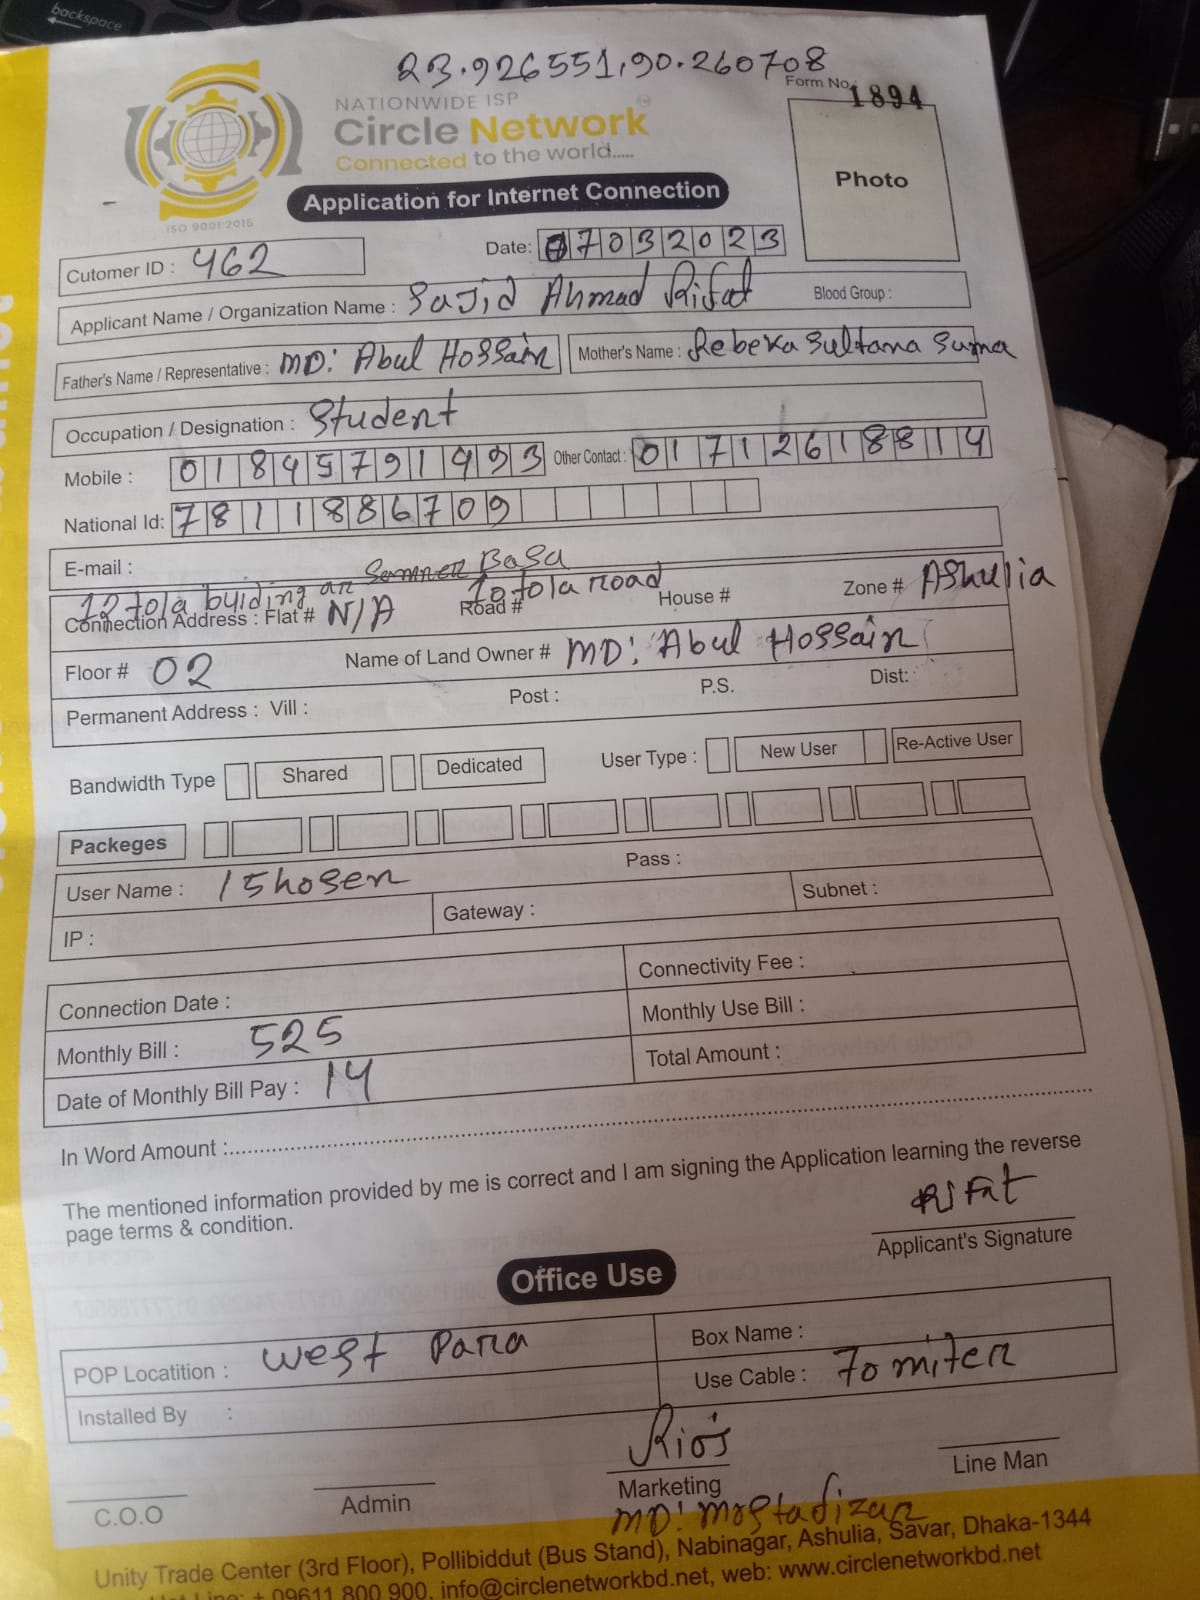 backspace
23.926551,90.260708
Form No. 1894
NATIONWIDE ISP
Circle Network
Connected to the world.....
ISO 9001:2015
Application for Internet Connection
Photo
Cutomer ID : 462
Date: 07032023
Applicant Name / Organization Name : Sajid Ahmad Rifat
Blood Group :
Father's Name / Representative : MD: Abul Hossain
Mother's Name : Rebeka Sultana Suma
Occupation / Designation : Student
Mobile : 01845791493
Other Contact : 01712618814
National Id: 7811886709
E-mail :
12 tola buiding ar Samner Basa
10 tola road
Connection Address : Flat # N/A Road # House # Zone # Ashulia
Floor # 02 Name of Land Owner # MD: Abul Hossain
Permanent Address : Vill : Post : P.S. Dist:
Bandwidth Type Shared Dedicated User Type : New User Re-Active User
Packeges
User Name : 15hosen Pass :
IP : Gateway : Subnet :
Connection Date : Connectivity Fee :
Monthly Bill : 525 Monthly Use Bill :
Date of Monthly Bill Pay : 14 Total Amount :
In Word Amount :
The mentioned information provided by me is correct and I am signing the Application learning the reverse
page terms & condition.
Rifat
Applicant's Signature
Office Use
POP Locatition : West Para Box Name :
Use Cable : 70 miter
Installed By :
C.O.O Admin Marketing Line Man
MD: Mostafizar
Unity Trade Center (3rd Floor), Pollibiddut (Bus Stand), Nabinagar, Ashulia, Savar, Dhaka-1344
09611 800 900, info@circlenetworkbd.net, web: www.circlenetworkbd.net